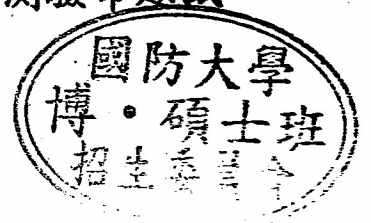 國防大學
博・碩士班
招生委員會